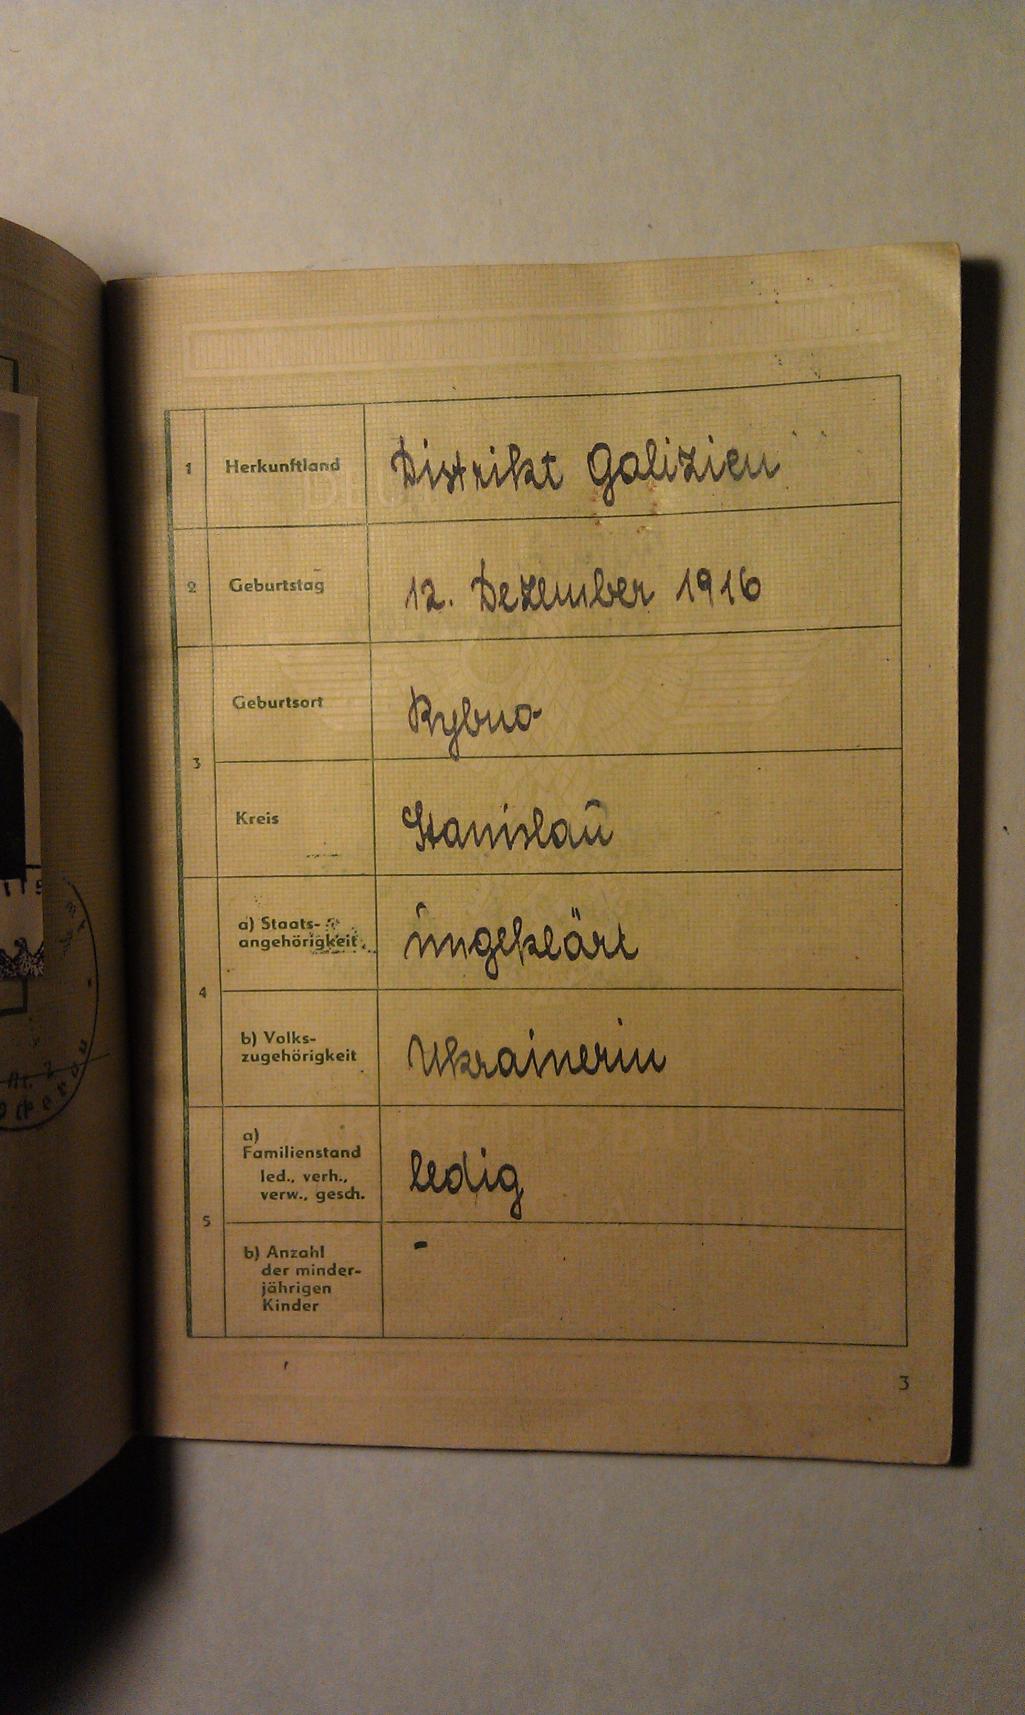 1 Herkunftland Distrikt Galizien
2 Geburtstag 12. Dezember 1916
3
Geburtsort Rybno
Kreis Stanislau
4
a) Staats-
angehörigkeit ungeklärt
b) Volks-
zugehörigkeit Ukrainerin
5
a)
Familienstand
led., verh.,
verw., gesch.
ledig
b) Anzahl
der minder-
jährigen
Kinder
-
3